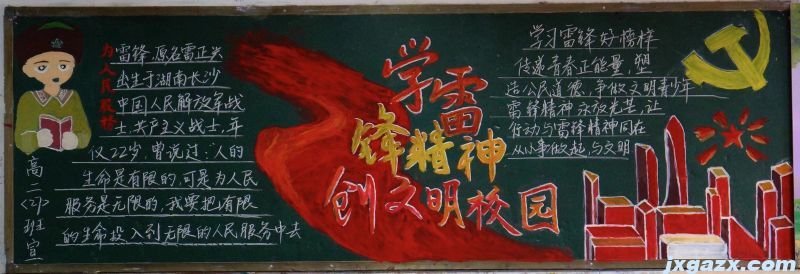 为人民服务
雷锋,原名雷正兴
出生于湖南长沙
中国人民解放军战
士,共产主义战士,年
仅22岁,曾说过:"人的
生命是有限的,可是为人民
服务是无限的,我要把有限
的生命投入到无限的人民服务中去
高二<2>班宣
学雷
锋精神
创文明校园
学习雷锋好榜样
传递青春正能量,塑
造公民道德,争做文明青少年
雷锋精神永放光芒,让
行动与雷锋精神同在
从小事做起,与文明
jxgazx.com